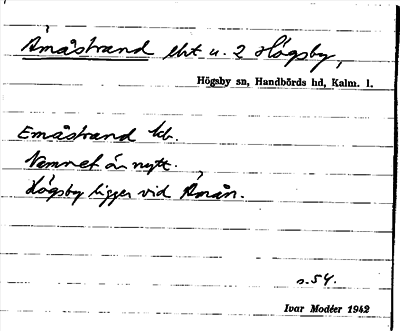 Åmåstrand lht u. 2 Högsby,
Högsby sn, Handbörds hd, Kalm. l.
Emåstrand kb.
Namnet är nytt.
Högsby ligger vid Åmån.
s. 54.
Ivar Modéer 1942